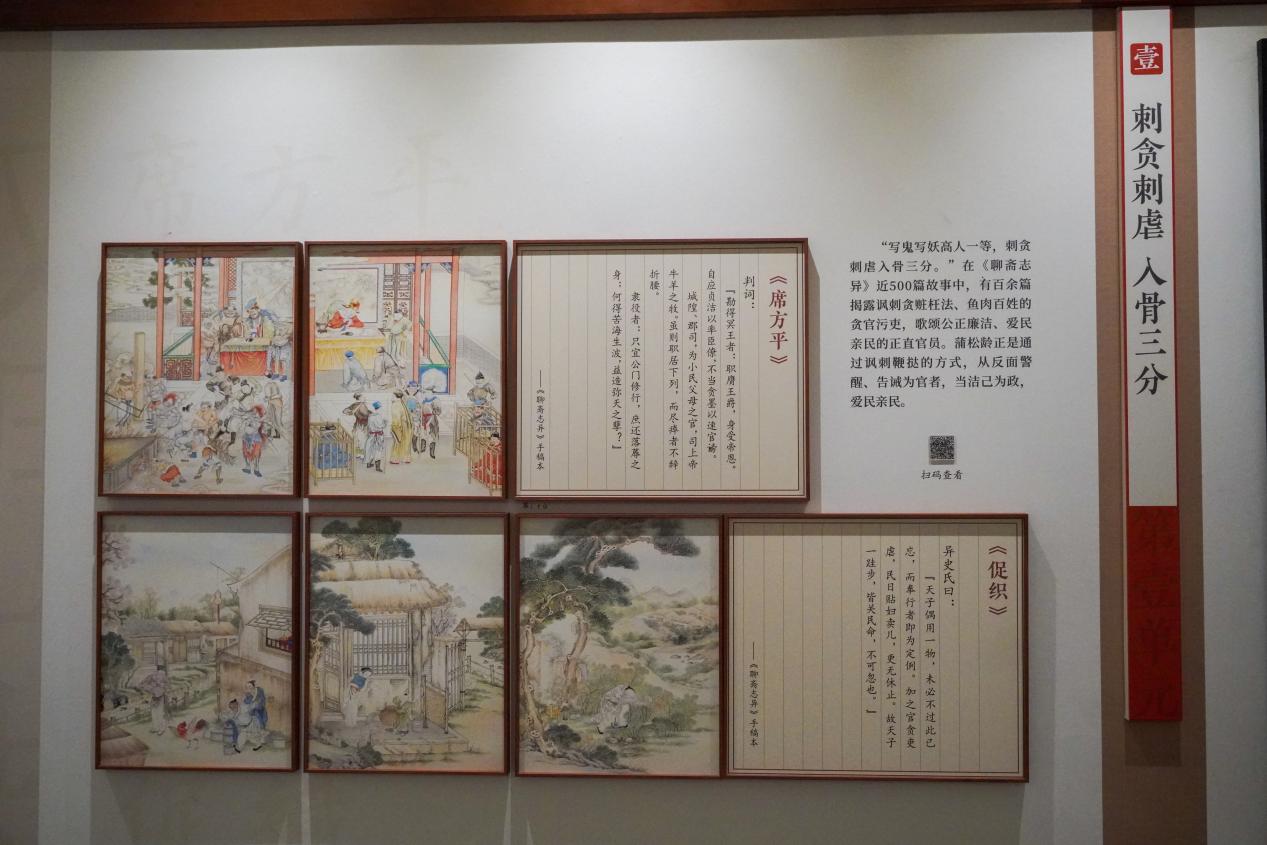 壹
刺贪刺虐 入骨三分
“写鬼写妖高人一等，刺贪
刺虐入骨三分。”在《聊斋志
异》近500篇故事中，有百余篇
揭露讽刺贪赃枉法、鱼肉百姓的
贪官污吏，歌颂公正廉洁、爱民
亲民的正直官员。蒲松龄正是通
过讽刺鞭挞的方式，从反面警
醒、告诫为官者，当洁己为政，
爱民亲民。
扫码查看
席方平
《席方平》
判词：
“勘得冥王者：职膺王爵，身受帝恩。
自应贞洁以率臣僚，不当贪墨以速官谤。
城隍、郡司，为小民父母之官，司上帝
牛羊之牧。虽则职居下列，而尽瘁者不辞
折腰。
隶役者：只宜公门修行，庶还落蓐之
身；何得苦海生波，益造弥天之孽？”
——《聊斋志异》手稿本
《促织》
异史氏曰：
“天子偶用一物，未必不过此已
忘，而奉行者即为定例。加之官贪吏
虐，民日贴妇卖儿，更无休止。故天子
一跬步，皆关民命，不可忽也。”
——《聊斋志异》手稿本